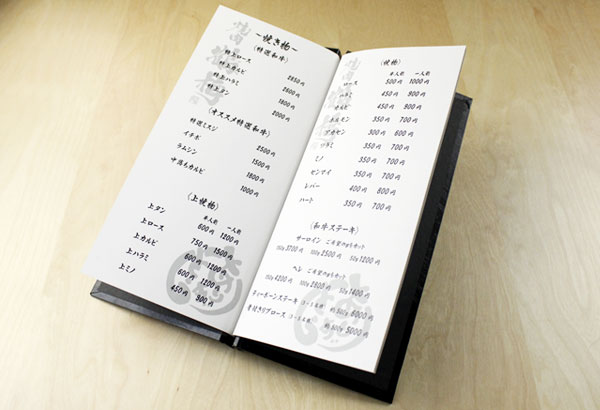 －焼き物－
(特選和牛)
特上ロース 2850円
特上カルビ 2600円
特上ハラミ 1800円
特上タン 2000円
(オススメ特選和牛)
特選ミスジ 2500円
イチボ 1500円
ラムシン 1800円
中落ちカルビ 1000円
(上焼物)
半人前 一人前
上タン 600円 1200円
上ロース 750円 1500円
上カルビ 600円 1200円
上ハラミ 600円 1200円
上ミノ 450円 900円
(焼物)
半人前 一人前
ロース 500円 1000円
カルビ 450円 900円
ハラミ 450円 900円
ホルモン 350円 700円
アカセン 300円 600円
ツラミ 350円 700円
ミノ 350円 700円
センマイ 350円 700円
レバー 400円 800円
ハート 350円 700円
(和牛ステーキ)
サーロイン ご希望のgをカット
150g 3700円 100g 2500円 50g 1200円
ヘレ ご希望のgをカット
150g 4200円 100g 2800円 50g 1400円
ティーボーンステーキ 約500g 6000円
骨付きリブロース 約500g 5000円